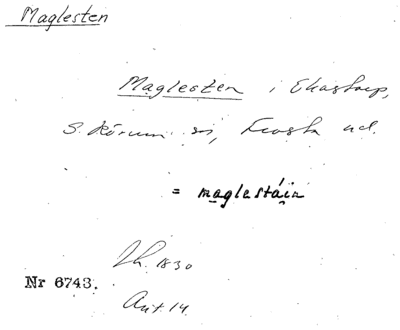 Maglesten
Maglesten i Ekastorp,
S. Rörum sn, Frosta hd.
= maglestáin
1830
Nr 6743.
Ant. 14.